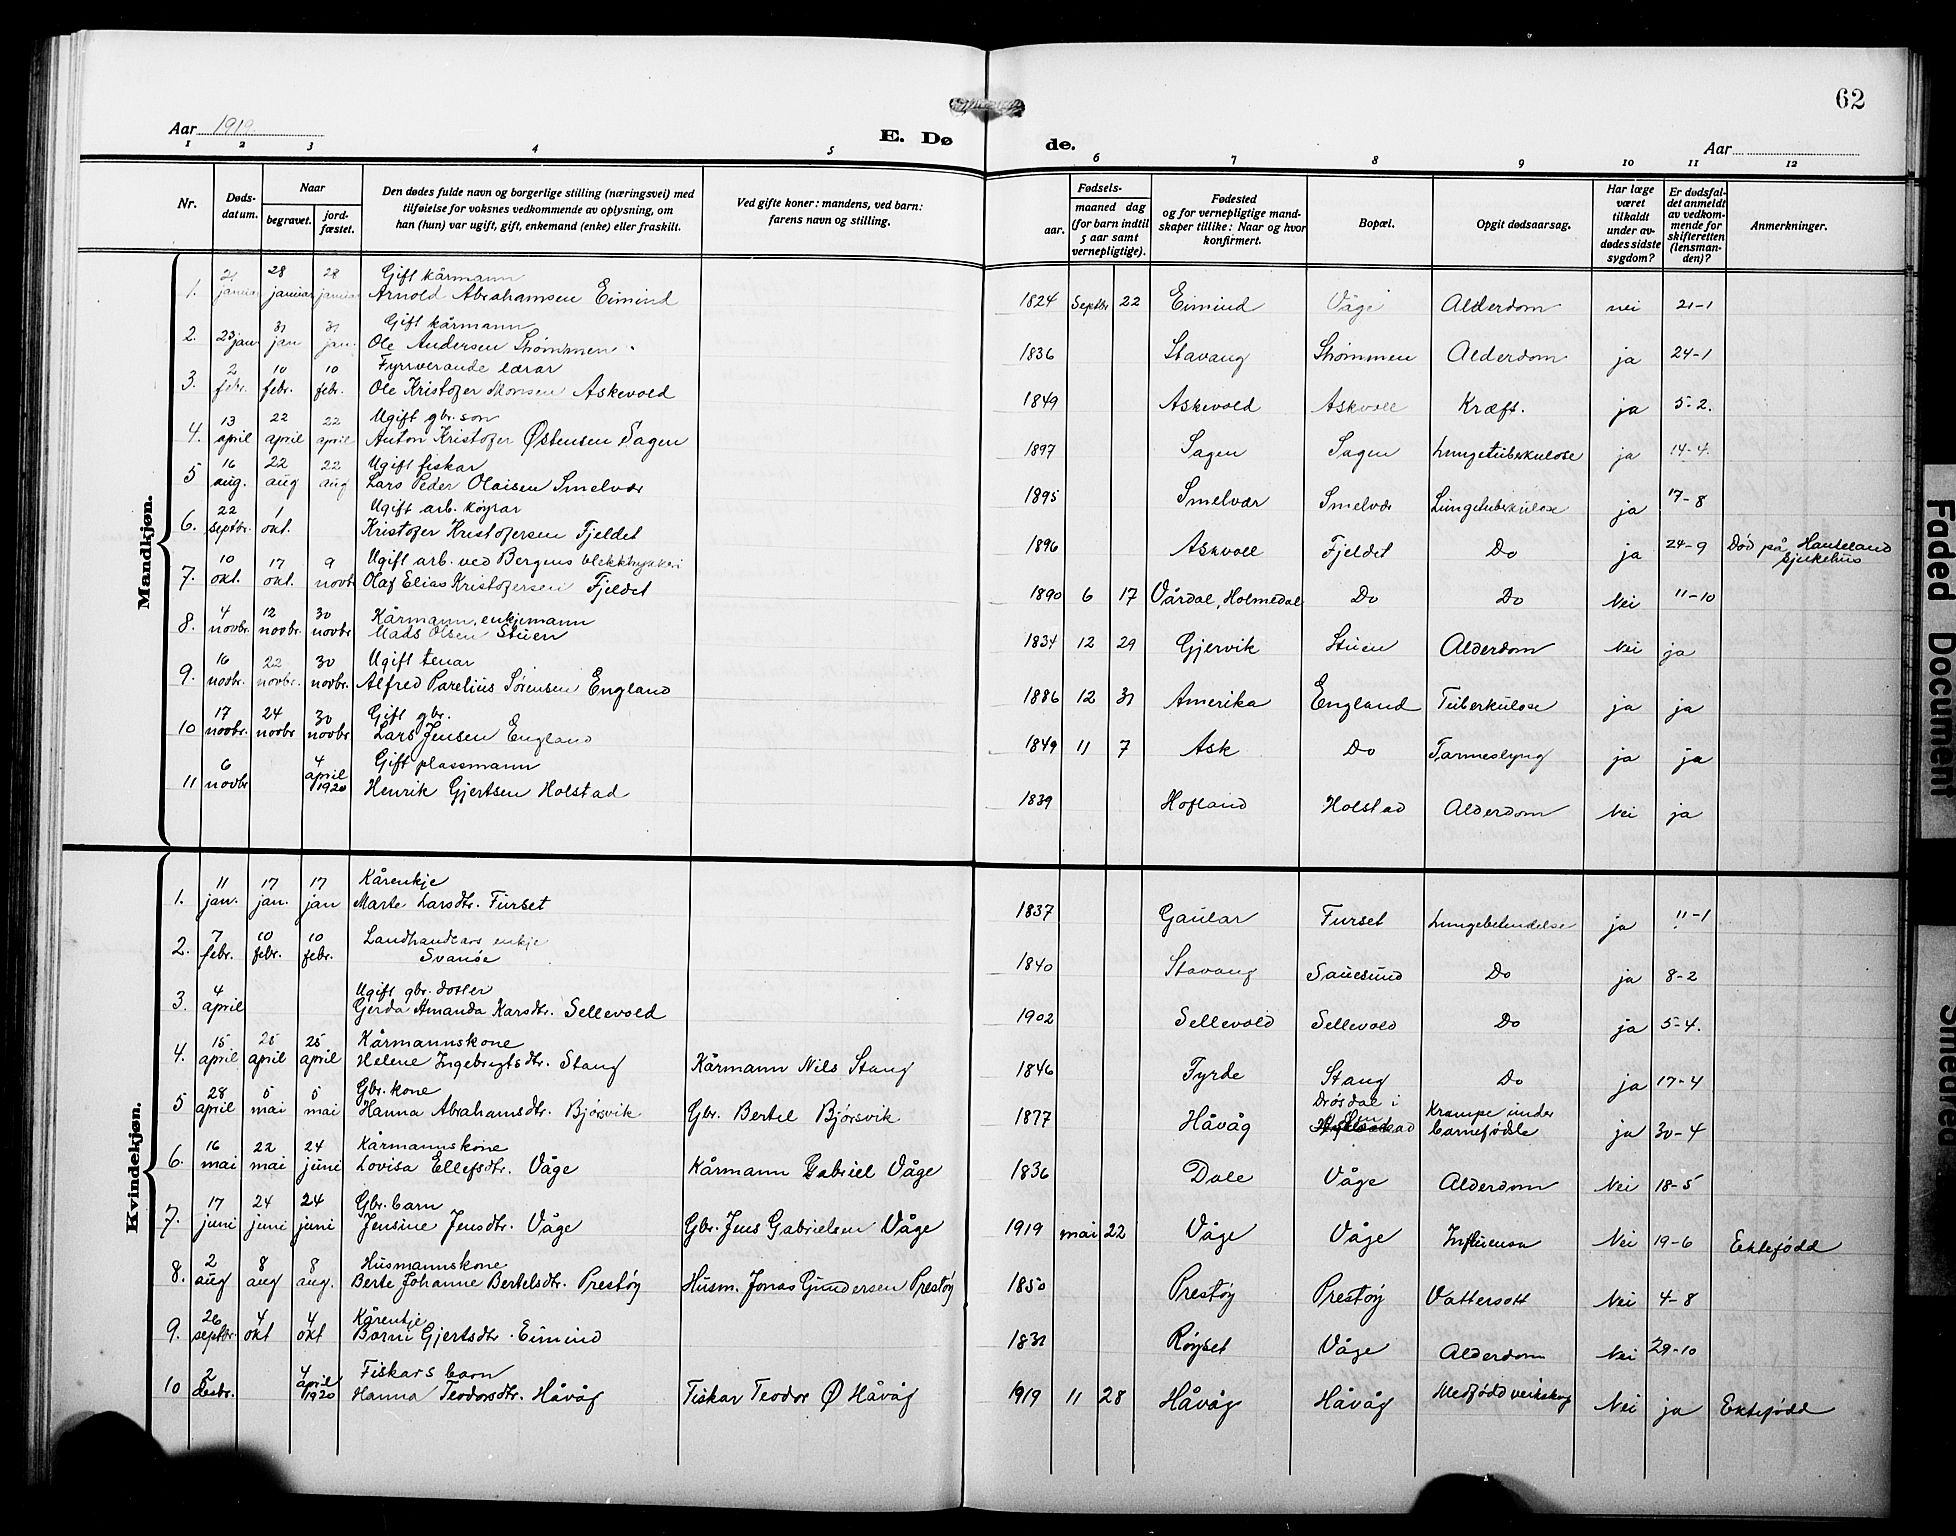 62
Aar 1919.
E. Dø
de.
Aar
1 2 3 4 5 6 7 8 9 10 11 12
Nr.
Døds-
datum.
Naar
begravet.
jord-
fæstet.
Den dødes fulde navn og borgerlige stilling (næringsvei) med
tilføielse for voksnes vedkommende av oplysning, om
han (hun) var ugift, gift, enkemand (enke) eller fraskilt.
Ved gifte koner: mandens, ved barn:
farens navn og stilling.
Fødsels-
aar.
maaned dag
(for barn indtil
5 aar samt
vernepligtige).
Fødested
og for vernepligtige mand-
skaper tillike: Naar og hvor
konfirmert.
Bopæl.
Opgit dødsaarsag.
Har læge
været
tilkaldt
under av-
dødes sidste
sygdom?
Er dødsfal-
det anmeldt
av vedkom-
mende for
skifteretten
(lensman-
den)?
Anmerkninger.
Mandkjøn.
21 28 28 Gift kårmann
1. januar januar januar Arnold Abrahamsen Eimind 1824 Septbr 22 Eimind Våge Alderdom nei 21-1
31 31 Gift kårmann
2. 23 jan jan jan. Ole Andersen Strømmen 1836 Stavang Strømmen Alderdom ja 24-1
2 10 10 Fyrrverande lærar
3. febr. febr. febr. Ole Kristofer Monsen Askevold 1849 Askevold Askvoll Kræft. ja 5-2.
13 22 22 Ugift gbr. son
4. april april april Anton Kristofer Østensen Sagen 1897 Sagen Sagen Lungetuberkulose ja 14-4.
16 22 22 Ugift fiskar
5 aug. aug aug Lars Peder Olaisen Smelvær 1895 Smelvær Smelvær Lungetuberkulose ja 17-8
22 1 Ugift arb. køyrar
6. septbr. okt. Kristofer Kristofersen Fjeldet 1896 Askvoll Fjeldet Do ja 24-9 Død på Hauteland
sjukehus
10 17 9 Ugift arb. ved Bergens blekktrykkeri
7. okt. okt. novbr Olaf Elias Kristofersen Fjeldet 1890 6 17 Vårdal, Holmedal Do Do Nei 11-10
4 12 30 Kårmann, enkjemann
8. novbr. novbr. novbr Mads Olsen Stuen 1834 12 29 Gjervik Stuen Alderdom Nei ja
16 22 30 Ugift tenar
9. novbr. novbr. novbr. Alfred Parelius Sørensen England 1886 12 31 Amerika England Tuberkulose ja ja
17 24 30 Gift gbr.
10 novbr. novbr novbr Lars Jensen England 1849 11 7 Ask Do Tarmeslyng ja ja
6 4 Gift plassmann
11 novbr april
1920 Henrik Gjertsen Holstad 1839 Hofland Holstad Alderdom Nei ja
Kvindekjøn.
11 17 17 Kårenkje
1. jan. jan. jan Marte Larsdtr. Furset 1837 Gaular Furset Lungebetendelse ja 11-1
7 10 10 Landhandlars enkje
2. febr. febr. febr. Svanøe 1840 Stavang Sauesund Do ja 8-2
4 Ugift gbr. dotter
3. april Gerda Amanda Karsdtr. Sellevold 1902 Sellevold Sellevold Do ja 5-4.
15 25 25 Kårmannskone
4. april april april Helene Ingebrigtsdtr. Stang Kårmann Nils Stang 1846 Fyrde Stang Do ja 17-4
28 5 5 Gbr. kone
5 april mai mai Hanna Abrahamsdtr. Bjørsvik Gbr. Bertel Bjørsvik 1877 Håvåg Drøsdal i Krampe under
barnefødsle ja 30-4
16 22 24 Kårmannskone
6. mai mai juni Lovisa Ellefsdtr. Våge Kårmann Gabriel Våge 1836 Dale Våge Alderdom Nei 18-5
17 24 24 Gbr. barn
7. juni juni juni Jensine Jensdtr. Våge Gbr. Jens Gabrielsen Våge 1919 mai 22 Våge Våge Influensa Nei 19-6 Ektefødd
2 8 8 Husmannskone
8. aug aug aug. Berte Johanne Bertelsdtr. Prestøy Husm. Jonas Gundersen Prestøy 1850 Prestøy Prestøy Vattersott Nei 4-8
26 4 4 Kårenkje
9. septbr. okt okt Barni Gjertsdtr. Eimind 1831 Røyset Våge Alderdom Nei 29-10
2 4 Fiskars barn
10 desbr. april
1920 Hanna Teodorsdtr. Håvåg Fiskar Teodor Ø Håvåg 1919 11 28 Håvåg Håvåg Medfødd veikskap Nei ja Ektefødd
Faded Document
Smeared